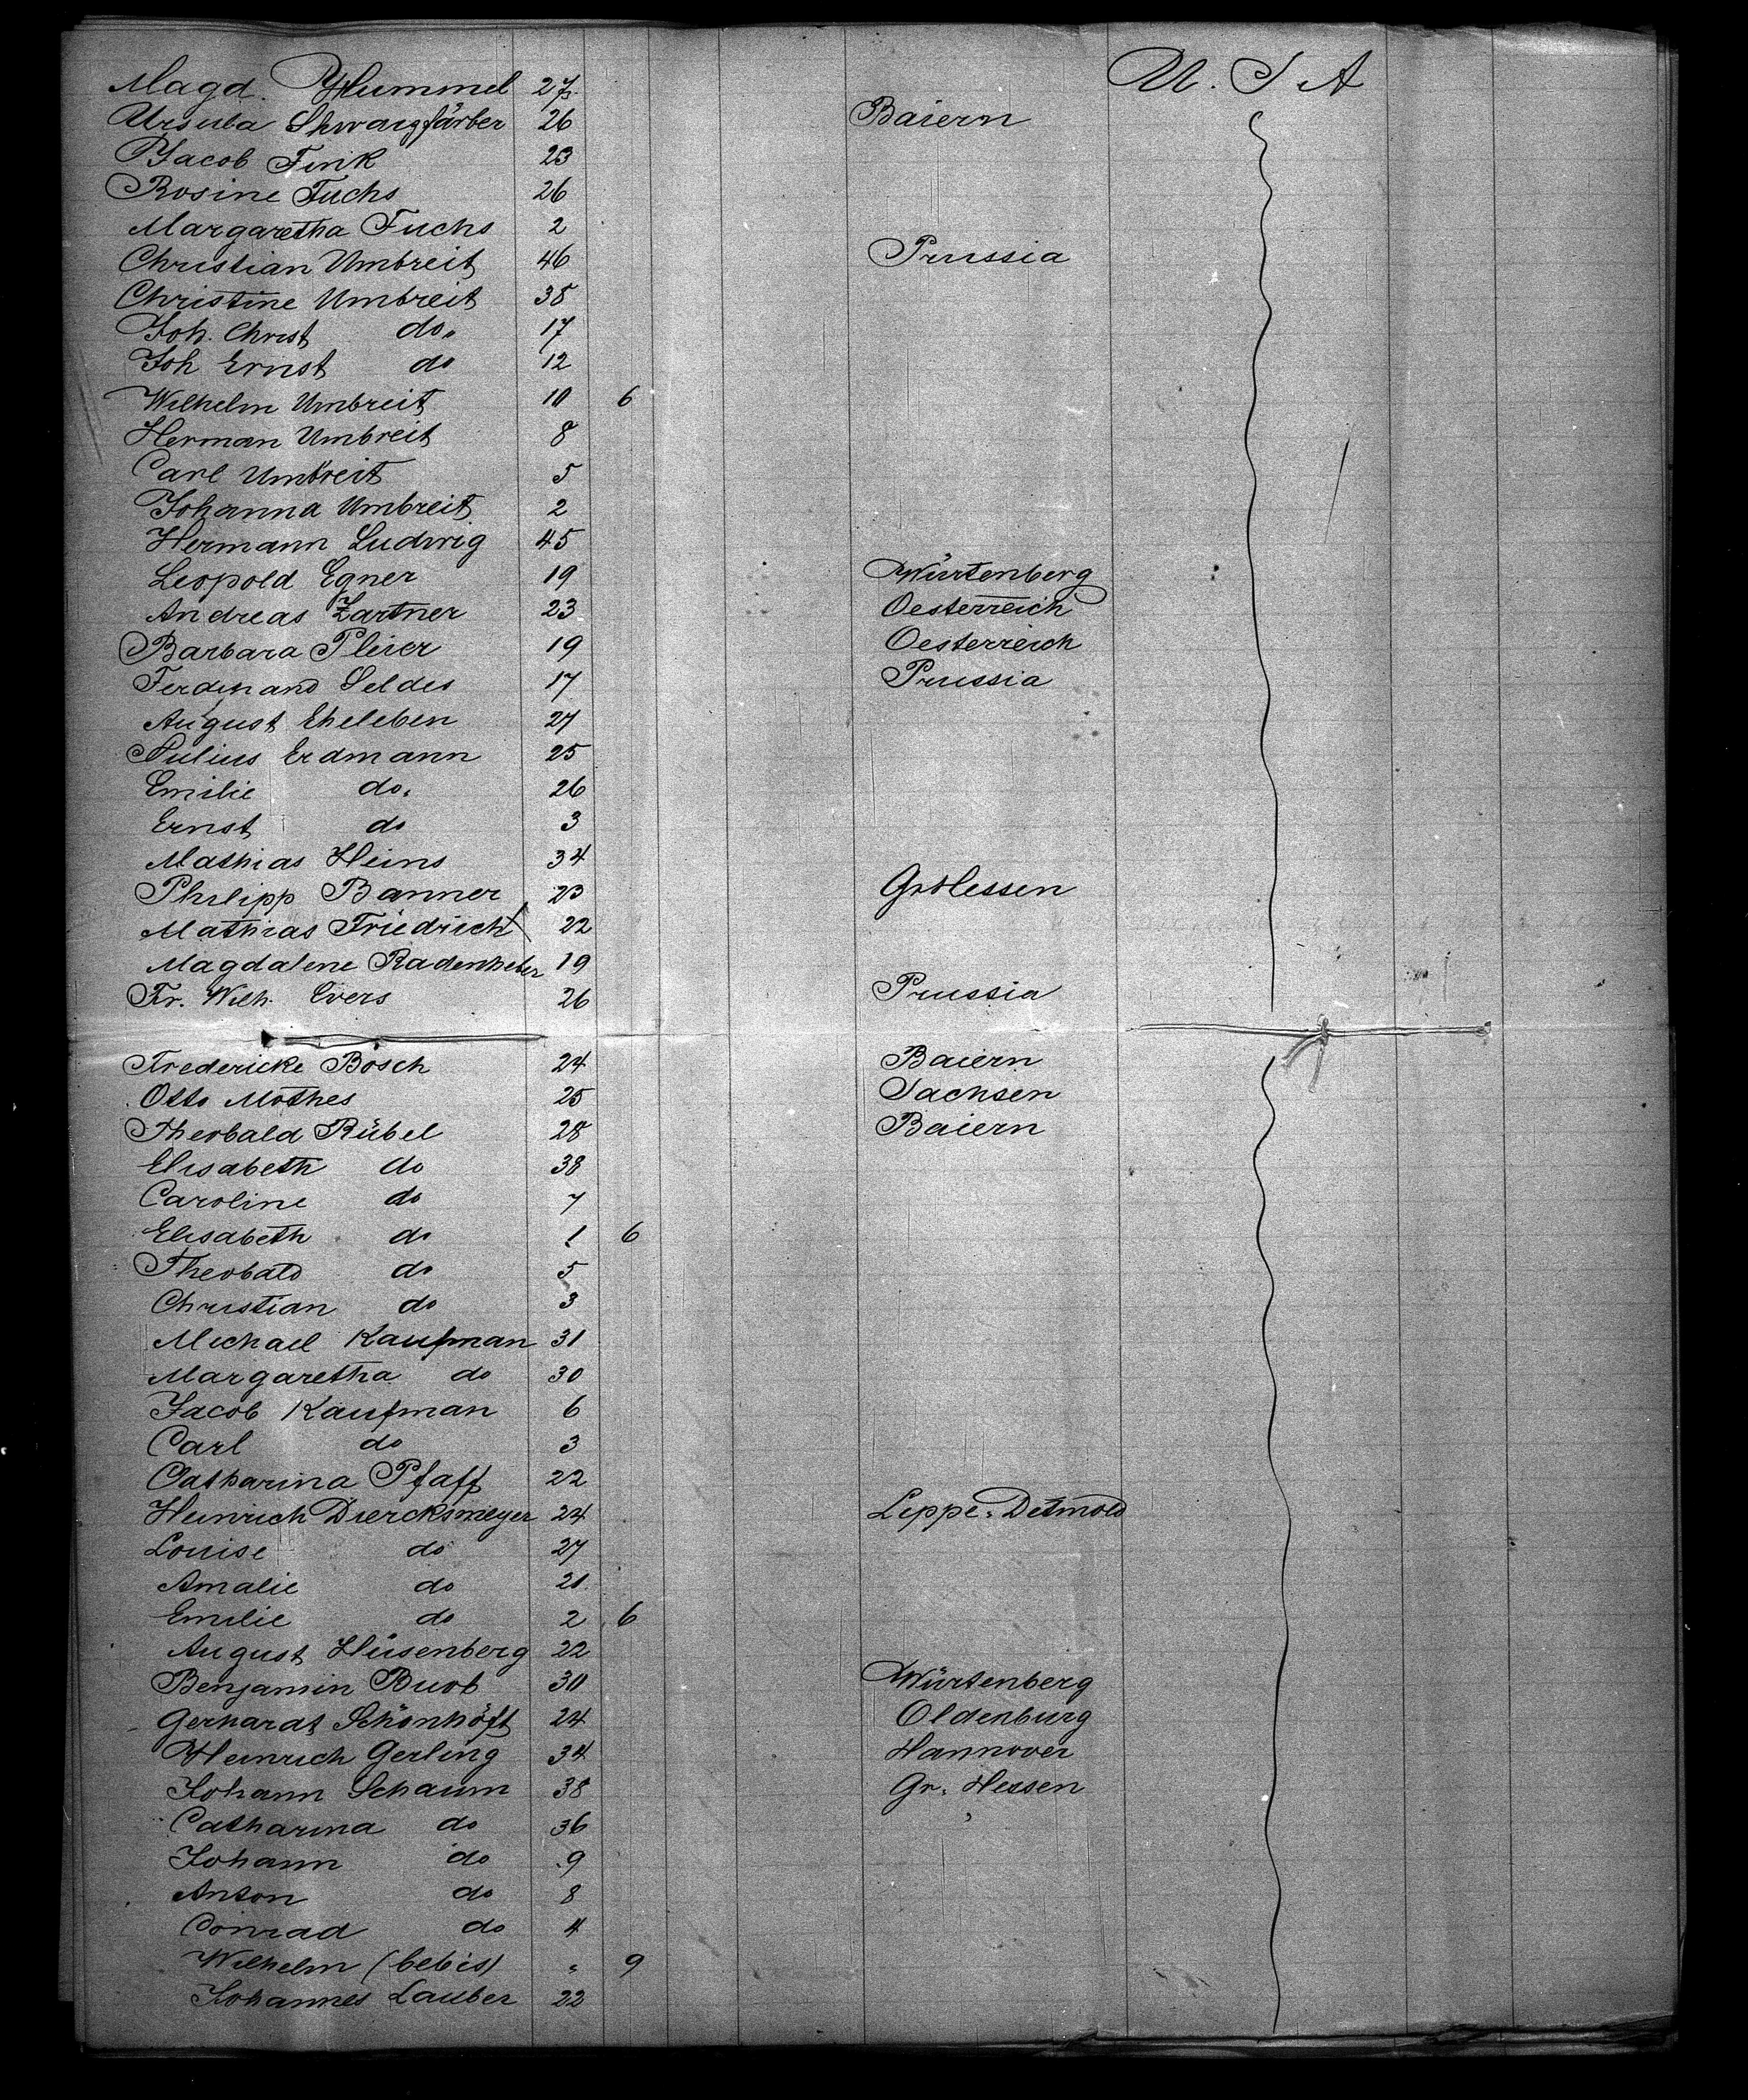 Magd. Hummel 27 U. S A
Ursula Shwarzfärber 26 Baiern
Jacob Fink 23
Rosine Fuchs 26
Margaretha Fuchs 2
Christian Umbreit 46 Prussia
Christine Umbreit 38
Joh. Christ do. 17
Joh Ernst do 12
Wilhelm Umbreit 10 6
Herman Umbreit 8
Carl Umbreit 5
Johanna Umbreit 2
Hermann Ludwig 45
Leopold Egner 19 Würtenberg
Andreas Zartner 23 Oesterreich
Barbara Pleier 19 Oesterreich
Ferdinand Seldes 17 Prussia
August Eheleben 27
Julius Erdmann 25
Emilie do. 26
Ernst do 3
Mathias Heins 34
Philipp Banner 23 GrHessen
Mathias Friedrich 22
Magdalene Radenheber 19
Fr. Wilh. Evers 26 Prussia
Fredericke Bosch 24 Baiern
Otto Mothes 25 Sachsen
Theobald Rübel 28 Baiern
Elisabeth do 38
Caroline do 7
Elisabeth do 1 6
Theobald do 5
Christian do 3
Michael Kaufman 31
Margaretha do 30
Jacob Kaufman 6
Carl do 3
Catharina Pfaff 22
Heinrich Diercksmeyer 24 Lippe-Detmold
Louise do 27
Amalie do 21
Emilie do 2 6
August Hüsenberg 22
Benjamin Buob 30 Würtenberg
Gerhardt Schönhöft 24 Oldenburg
Heinrich Gerling 34 Hannover
Johann Schaum 38 Gr. Hessen
Catharina do 36
Johann do 9
Anton do 8
Conrad do 4
Wilhelm (bebis) " 9
Johannes Lauber 22